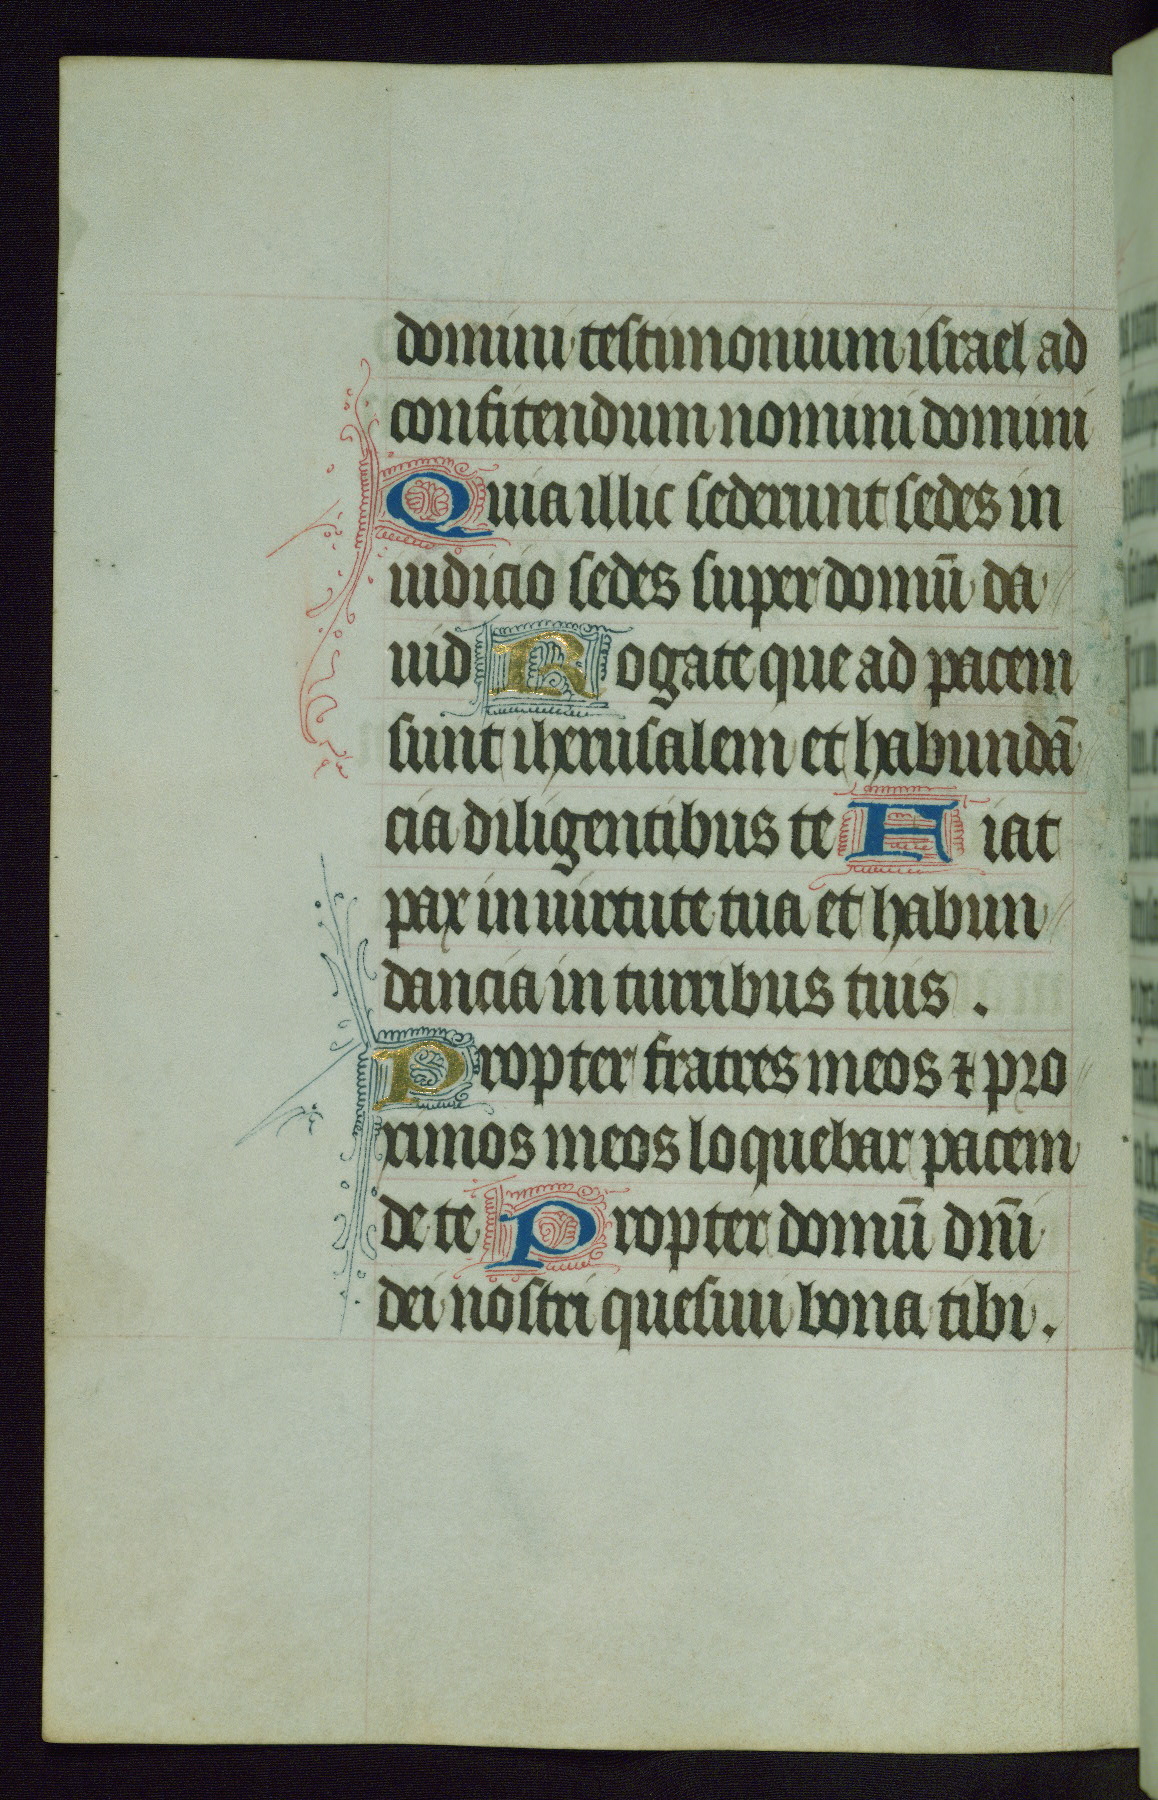 domini testimonium israel ad
confitendum nomini domini
Quia illic sederunt sedes in
iudicio sedes super domū da
uid Rogate que ad pacem
sunt iherusalem et habundā
cia diligentibus te Fiat
pax in uirtute tua et habun
dancia in turribus tuis .
Propter fratres meos ⁊ pro
ximos meos loquebar pacem
de te Propter domū dn̄i
dei nostri quesiui bona tibi .